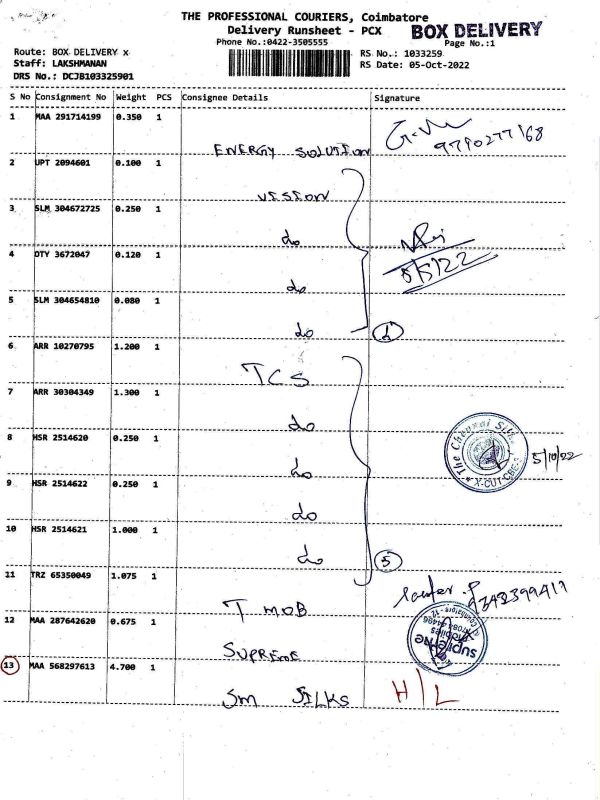 THE PROFESSIONAL COURIERS, Coimbatore
Delivery Runsheet - PCX
BOX DELIVERY
Phone No.:0422-3505555
Page No.:1
Route: BOX DELIVERY X
RS No.: 1033259
Staff: LAKSHMANAN
RS Date: 05-Oct-2022
DRS No.: DCJB103325901
S No Consignment No Weight PCS Consignee Details Signature
1 MAA 291714199 0.350 1
ENERGY SOLUTION
9790277168
2 UPT 2094601 0.100 1
VISION
3 SLM 304672725 0.250 1
do
4 OTY 3672047 0.120 1
do
5/5/22
5 SLM 304654810 0.080 1
do
6 ARR 10270795 1.200 1
TCS
7 ARR 30304349 1.300 1
do
8 HSR 2514620 0.250 1
do
The Chennai Silks
X-CUT-CBE
5/10/22
9 HSR 2514622 0.250 1
do
10 HSR 2514621 1.000 1
do
5
11 TRZ 65350049 1.075 1
T MOB
12 MAA 287642620 0.675 1
SUPREME
supreme
mobiles
13 MAA 568297613 4.700 1
SM SILKS
H/L